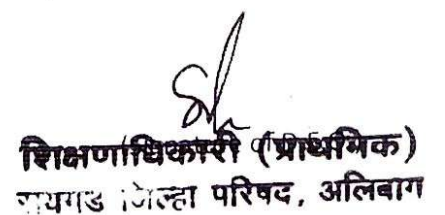 शिक्षणाधिकारी (प्राथमिक)
रायगड जिल्हा परिषद, अलिबाग